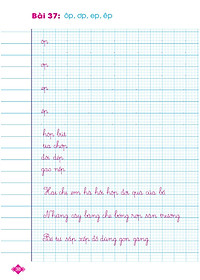 Bài 37: ôp, ơp, ep, êp
ôp
ơp
ep
êp
hộp bút
tia chớp
đôi dép
gạo nếp
Hai chị em hồi hộp đợi quà của bố
Những cây bàng che bóng rợp sân trường
Bé tự sắp xếp đồ dùng gọn gàng